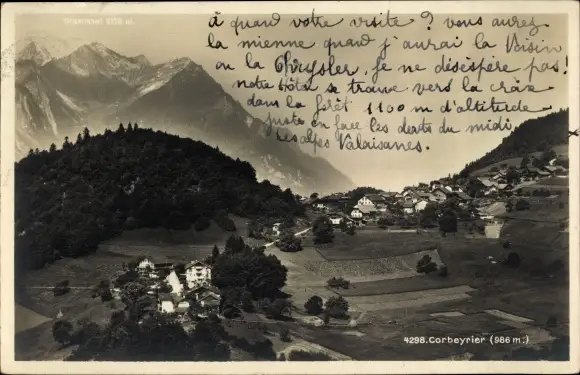 à quand votre visite ? vous aurez
la mienne quand j'aurai la Voisin
ou la Chrysler, je ne désespère pas!
notre Hôtel se trouve vers la crâx
dans la forêt 1100 m d'altitude
juste en face les dents du midi
les alpes Valaisannes.
4298. Corbeyrier (986 m.)